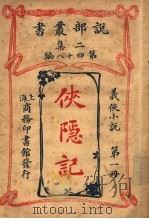 說部叢書
二集
第四十八編
義俠小說 第一冊
俠隱記
上海商務印書館發行